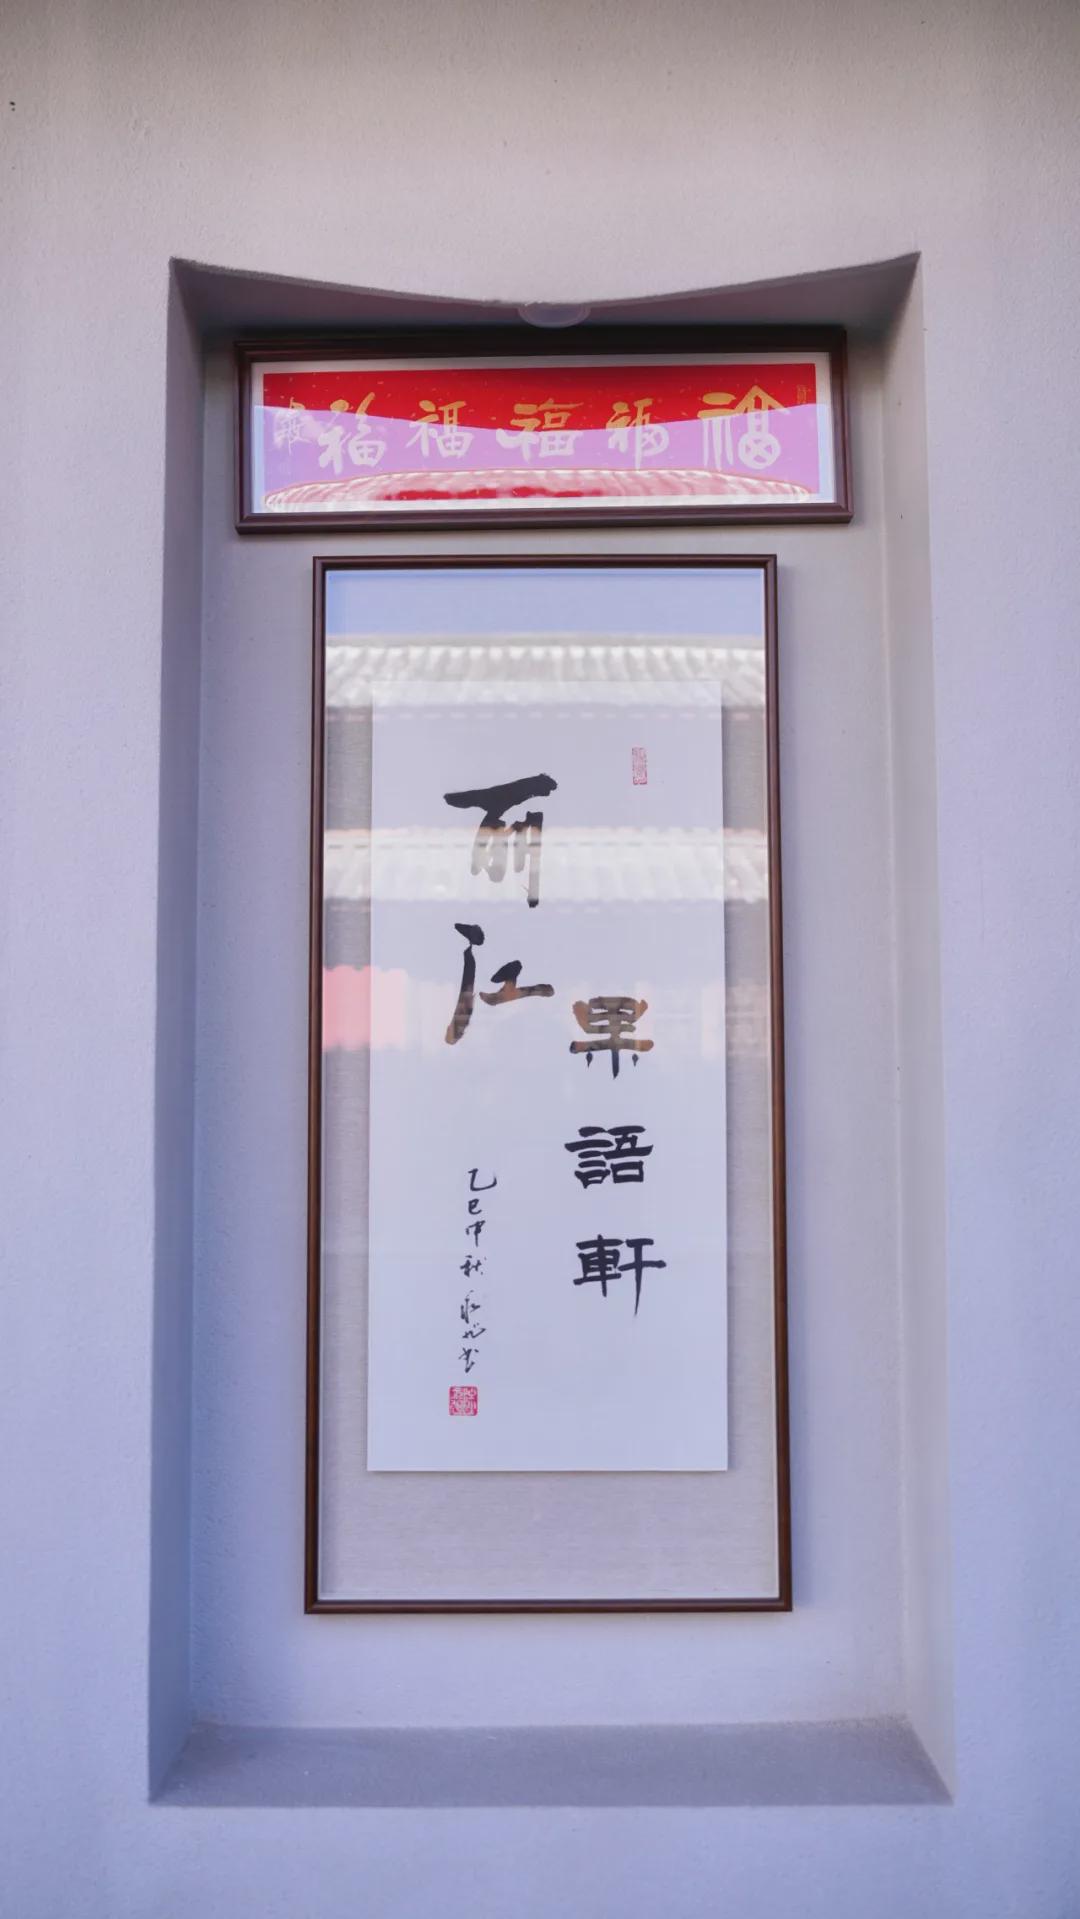 福福福福福
果語軒
丽江
乙巳中秋